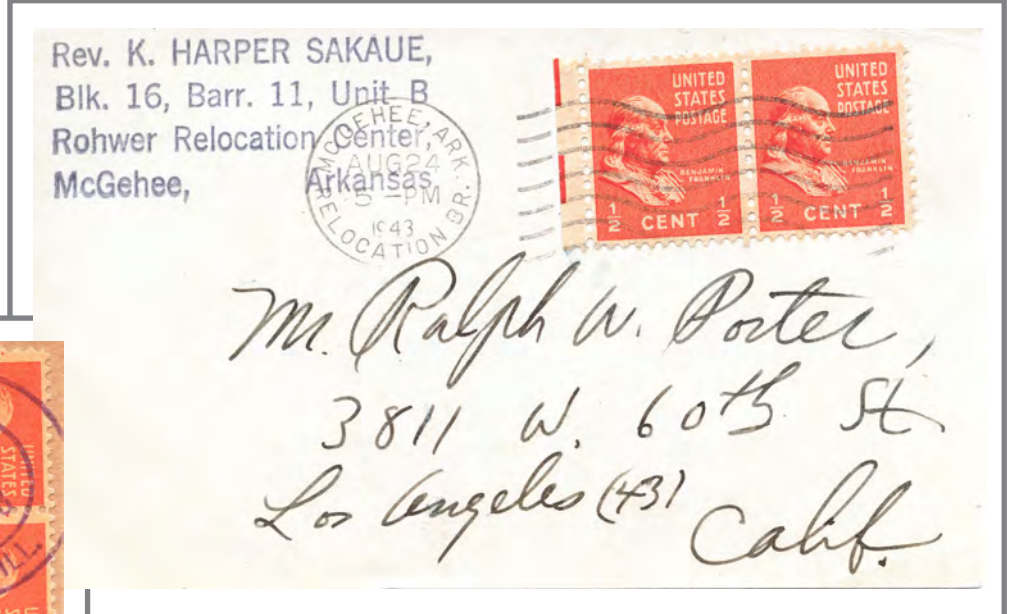 Rev. K. HARPER SAKAUE,
Blk. 16, Barr. 11, Unit B
Rohwer Relocation Center,
McGehee, Arkansas
McGEHEE, ARK.
AUG 24
5 - PM
1943
RELOCATION BR.
UNITED
STATES
POSTAGE
BENJAMIN
FRANKLIN
1/2 CENT 1/2
UNITED
STATES
POSTAGE
BENJAMIN
FRANKLIN
1/2 CENT 1/2
Mr. Ralph W. Porter,
3811 W. 60th St
Los Angeles (43)
Calif.
UNITED
STATES
ILL.